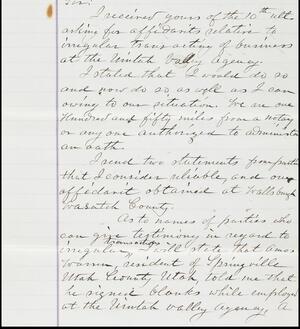 Sir:
I received yours of the 10th ult.
asking for affidavits relative to
irregular transacting of business
at the Uintah Valley Agency.
I stated that I would do so
and now do so as well as I can
owing to our situation. We are one
Hundred and fifty miles from a notary
or any one authorized to administer
an oath.
I send two statements from parties
that I consider reliable, and one
affidavit obtained at Wallsburgh
Wasatch County.
As to names of parties who
can give testimony in regard to
transactings
irregular I will state that Amos
Warren, resident of Springville
Utah County Utah told me that
he signed blanks while employed
at the Uintah Valley Agency, A